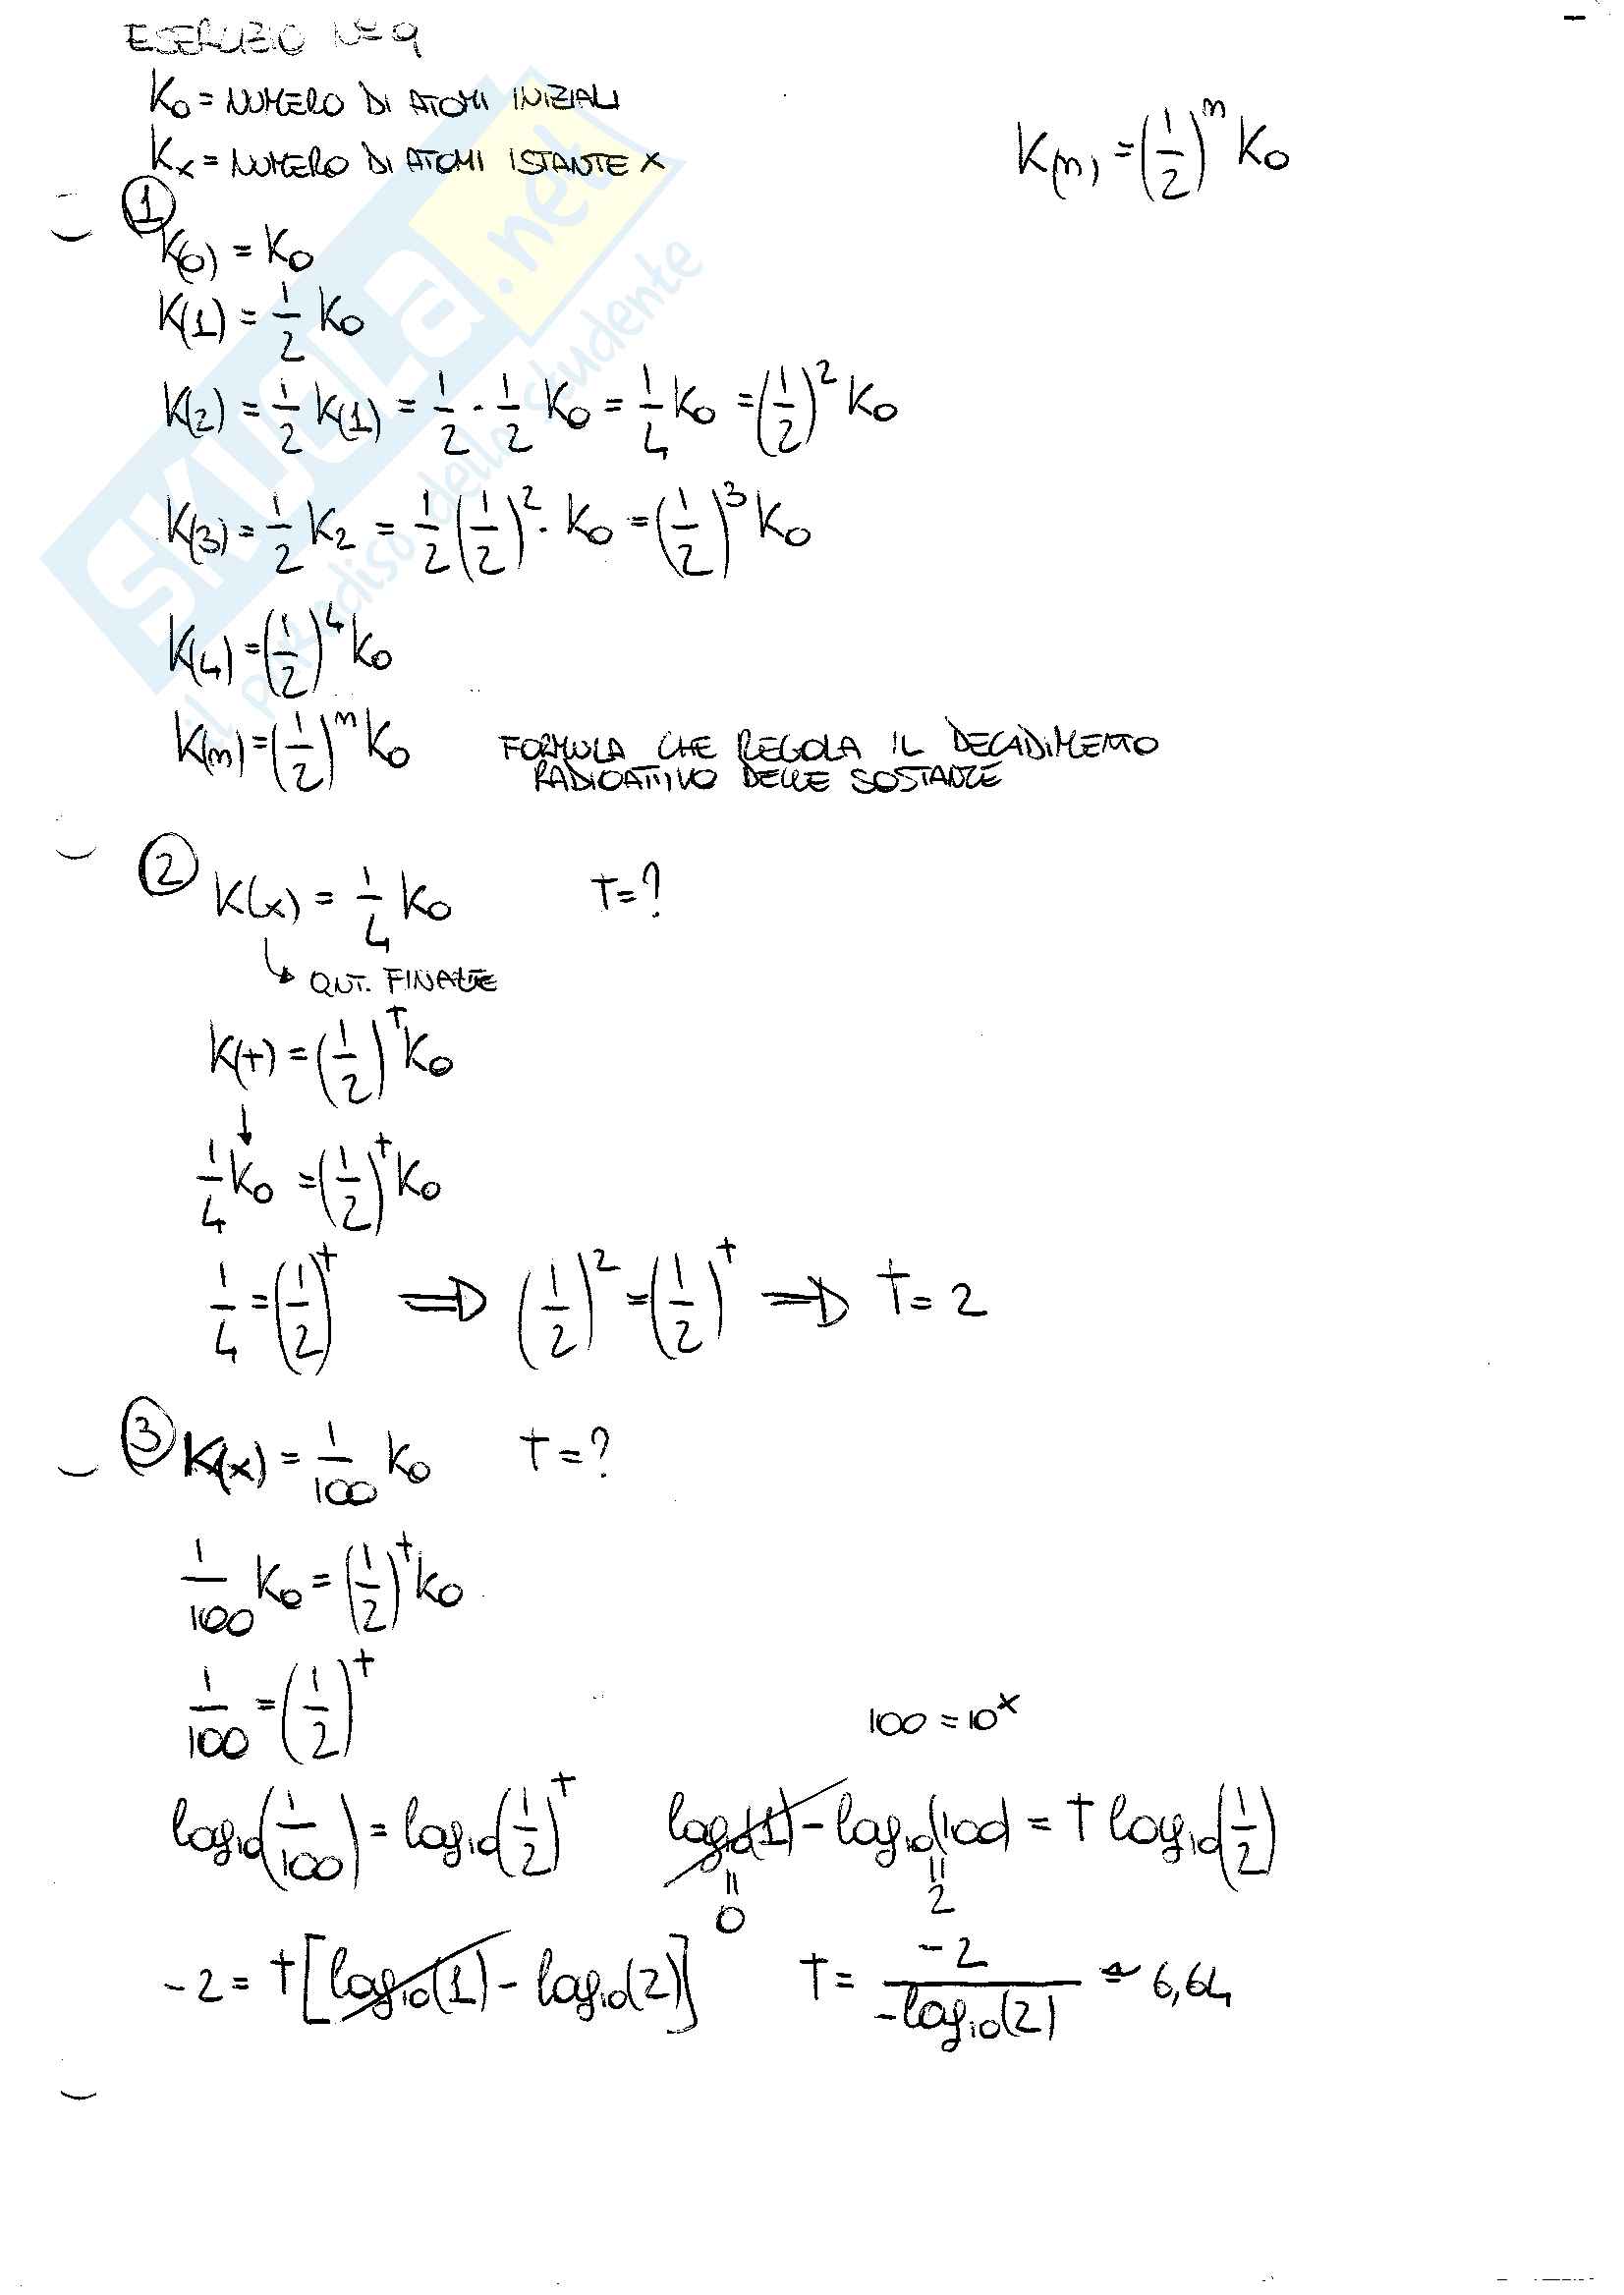 ESERCIZIO N° 9
K₀ = NUMERO DI ATOMI INIZIALI
Kₓ = NUMERO DI ATOMI ISTANTE X
K(n) = (1/2)ⁿ K₀
①
K(0) = K₀
K(1) = 1/2 K₀
K(2) = 1/2 K(1) = 1/2 · 1/2 K₀ = 1/4 K₀ = (1/2)² K₀
K(3) = 1/2 K₂ = 1/2 (1/2)² · K₀ = (1/2)³ K₀
K(4) = (1/2)⁴ K₀
K(n) = (1/2)ⁿ K₀ FORMULA CHE REGOLA IL DECADIMENTO
RADIOATTIVO DELLE SOSTANZE
② K(x) = 1/4 K₀ t = ?
↳ QNT. FINALE
K(t) = (1/2)ᵗ K₀
↓
1/4 K₀ = (1/2)ᵗ K₀
1/4 = (1/2)ᵗ ⇒ (1/2)² = (1/2)ᵗ ⇒ t = 2
③ K(x) = 1/100 K₀ t = ?
1/100 K₀ = (1/2)ᵗ K₀
1/100 = (1/2)ᵗ
100 = 10ˣ
log₁₀(1/100) = log₁₀(1/2)ᵗ log₁₀(1) - log₁₀(100) = t log₁₀(1/2)
= 0 = 2
-2 = t [log₁₀(1) - log₁₀(2)] t = -2/-log₁₀(2) ≃ 6,64
SKUOLA.net
il paradiso dello studente